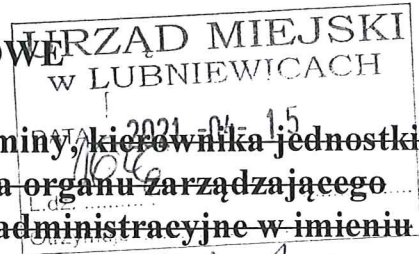 OWE
URZĄD MIEJSKI
w LUBNIEWICACH
DATA 2021 -04- 15
miny, kierownika jednostki
a organu zarządzającego
L.dz. ..........
administracyjne w imieniu